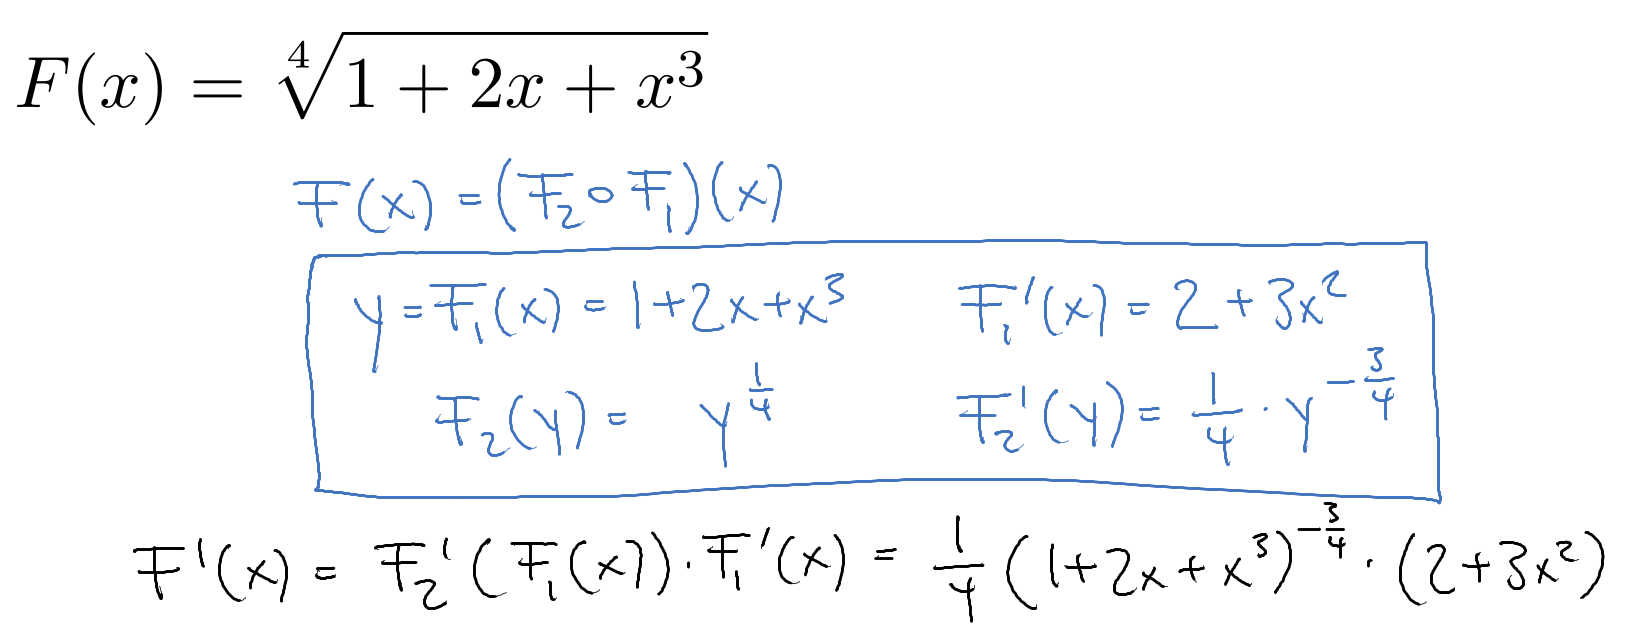 F(x) = ∜(1 + 2x + x³)
F(x) = (F₂ ∘ F₁)(x)
y = F₁(x) = 1+2x+x³   F₁'(x) = 2 + 3x²
F₂(y) = y^(1/4)   F₂'(y) = 1/4 · y^(-3/4)
F'(x) = F₂'(F₁(x)) · F₁'(x) = 1/4 (1+2x+x³)^(-3/4) · (2+3x²)